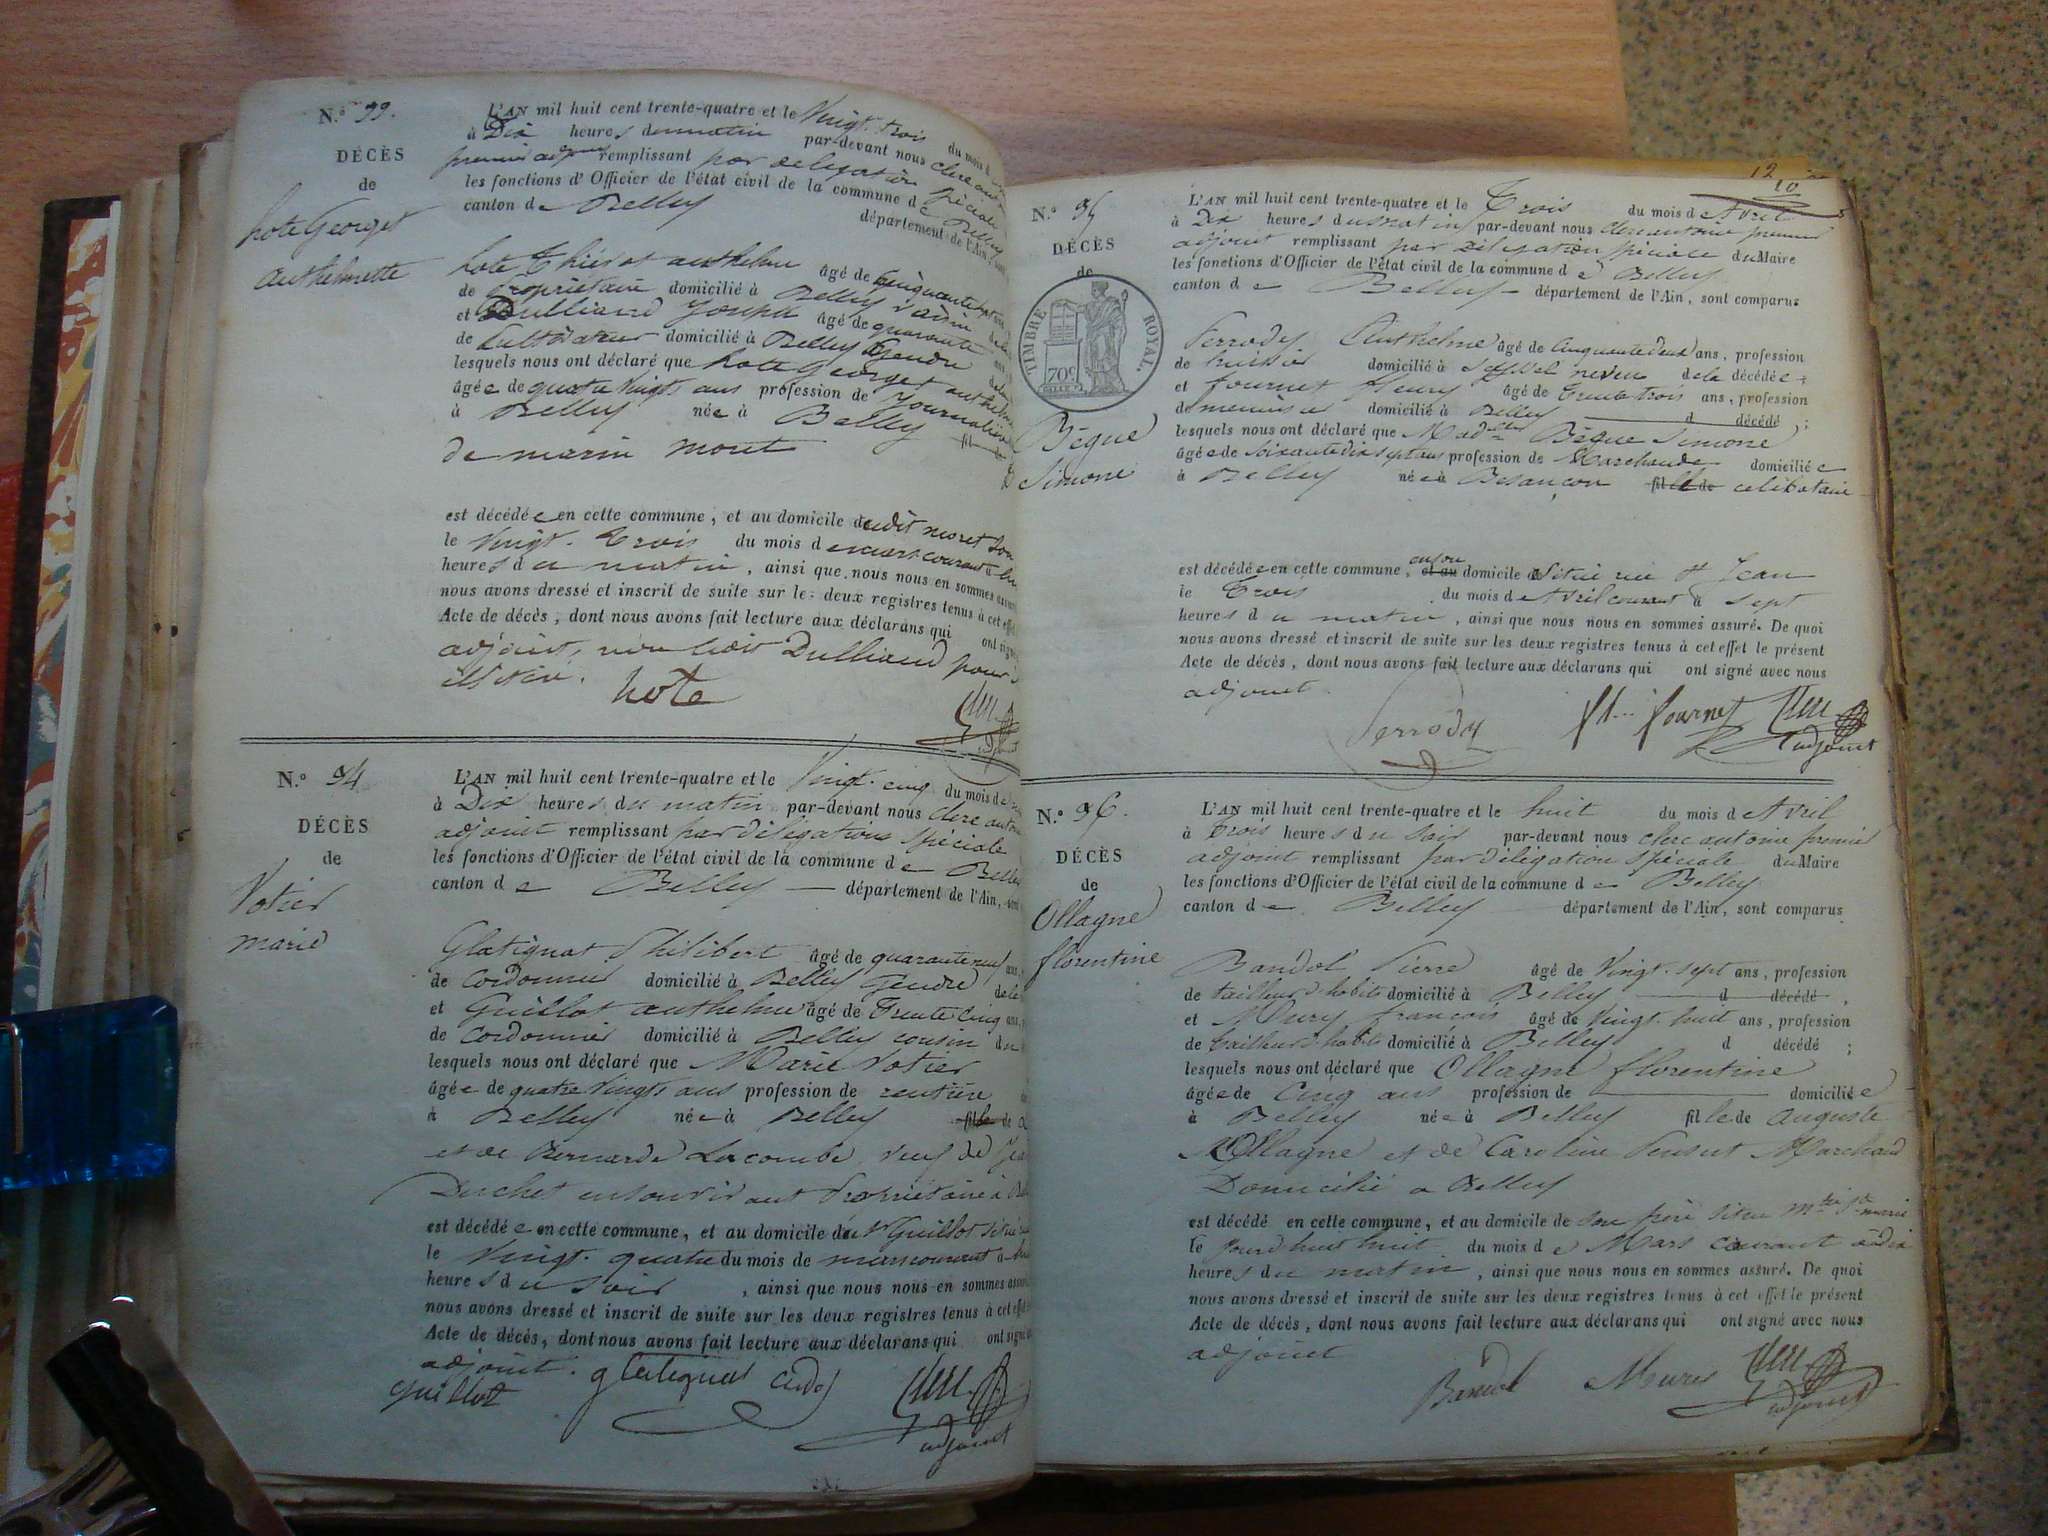 N.º
DÉCÈS
de
hote Georget
Anthelmette
L'AN mil huit cent trente-quatre et le Vingt. trois du mois d
à Dix heures du matin par-devant nous clerc
premier adjoint remplissant par delegation spéciale
les fonctions d'Officier de l'état civil de la commune de Belley
canton de Belley département de l'Ain,
hote anthelme âgé de Cinquante
de Propriétaire domicilié à Belley
et Dulliand Joseph âgé de quarante
de Cultivateur domicilié à Belley Gendre
lesquels nous ont déclaré que hote Georget
âgée de quatre vingts ans profession de Journalière
à Belley née à Belley fil
de
est décédée en cette commune, et au domicile dudit
le Vingt. Trois du mois de mars courant à
heures du matin, ainsi que nous nous en sommes
nous avons dressé et inscrit de suite sur les deux registres tenus à cet
Acte de décès, dont nous avons fait lecture aux déclarans qui ont
adjoint, Dulliand pour
hote
N.º 94
DÉCÈS
de
Votier
marie
L'AN mil huit cent trente-quatre et le Vingt. cinq du mois de
à Dix heures du matin par-devant nous clerc
adjoint remplissant par délégation spéciale
les fonctions d'Officier de l'état civil de la commune de Belley
canton de Belley département de l'Ain,
Glatignat Philibert âgé de quarante neuf
de Cordonnier domicilié à Belley Gendre de la
et Guillot anthelme âgé de Trente cinq
de Cordonnier domicilié à Belley cousin
lesquels nous ont déclaré que Marie Votier
âgée de quatre vingts ans profession de rentière
à Belley née à Belley fille de
et de Bernarde Lacombe, veuf de
Duchet en son vivant Propriétaire à
est décédée en cette commune, et au domicile du Sr Guillot situé
le Vingt. quatre du mois de mars courant à
heures du soir, ainsi que nous nous en sommes
nous avons dressé et inscrit de suite sur les deux registres tenus à cet
Acte de décès, dont nous avons fait lecture aux déclarans qui ont signé
adjoint. glatignat
guillot
adjoint
12
10
N.º 95
DÉCÈS
de
TIMBRE ROYAL.
70c
Bègue
Simone
L'AN mil huit cent trente-quatre et le Trois du mois d Avril
à Dix heures du matin par-devant nous clerc antoine premier
adjoint remplissant par délégation spéciale du Maire
les fonctions d'Officier de l'état civil de la commune de Belley
canton de Belley département de l'Ain, sont comparus
Ferrody Anthelme âgé de cinquante deux ans, profession
de huissier domicilié à Seyssel neveu de la décédée;
et fournet fleury âgé de Trente trois ans, profession
de menuisier domicilié à Belley d décédé;
lesquels nous ont déclaré que Madlle Bègue Simone
âgée de Soixante dix sept ans profession de Marchande domiciliée
à Belley née à Besançon fille de celibataire
est décédée en cette commune, et au en son domicile situé rue St Jean
le Trois du mois de Avril courant à sept
heures du matin, ainsi que nous nous en sommes assuré. De quoi
nous avons dressé et inscrit de suite sur les deux registres tenus à cet effet le présent
Acte de décès, dont nous avons fait lecture aux déclarans qui ont signé avec nous
adjoint
Ferrody fournet
adjoint
N.º 96.
DÉCÈS
de
Ollagne
florentine
L'AN mil huit cent trente-quatre et le huit du mois d Avril
à Trois heures du soir par-devant nous clerc antoine premier
adjoint remplissant par délégation spéciale du Maire
les fonctions d'Officier de l'état civil de la commune de Belley
canton de Belley département de l'Ain, sont comparus
Bandol Pierre âgé de Vingt. sept ans, profession
de tailleur d'habits domicilié à Belley d décédé,
et Mury françois âgé de Vingt. huit ans, profession
de tailleur d'habits domicilié à Belley d décédé;
lesquels nous ont déclaré que Ollagne florentine
âgée de Cinq ans profession de domiciliée
à Belley née à Belley fille de Auguste
Ollagne et de Caroline Marchand
Domicilié a Belley
est décédé en cette commune, et au domicile de son père situé
le jourd'huit huit du mois de Mars courant à dix
heures du matin, ainsi que nous nous en sommes assuré. De quoi
nous avons dressé et inscrit de suite sur les deux registres tenus à cet effet le présent
Acte de décès, dont nous avons fait lecture aux déclarans qui ont signé avec nous
adjoint
Bandol
adjoint